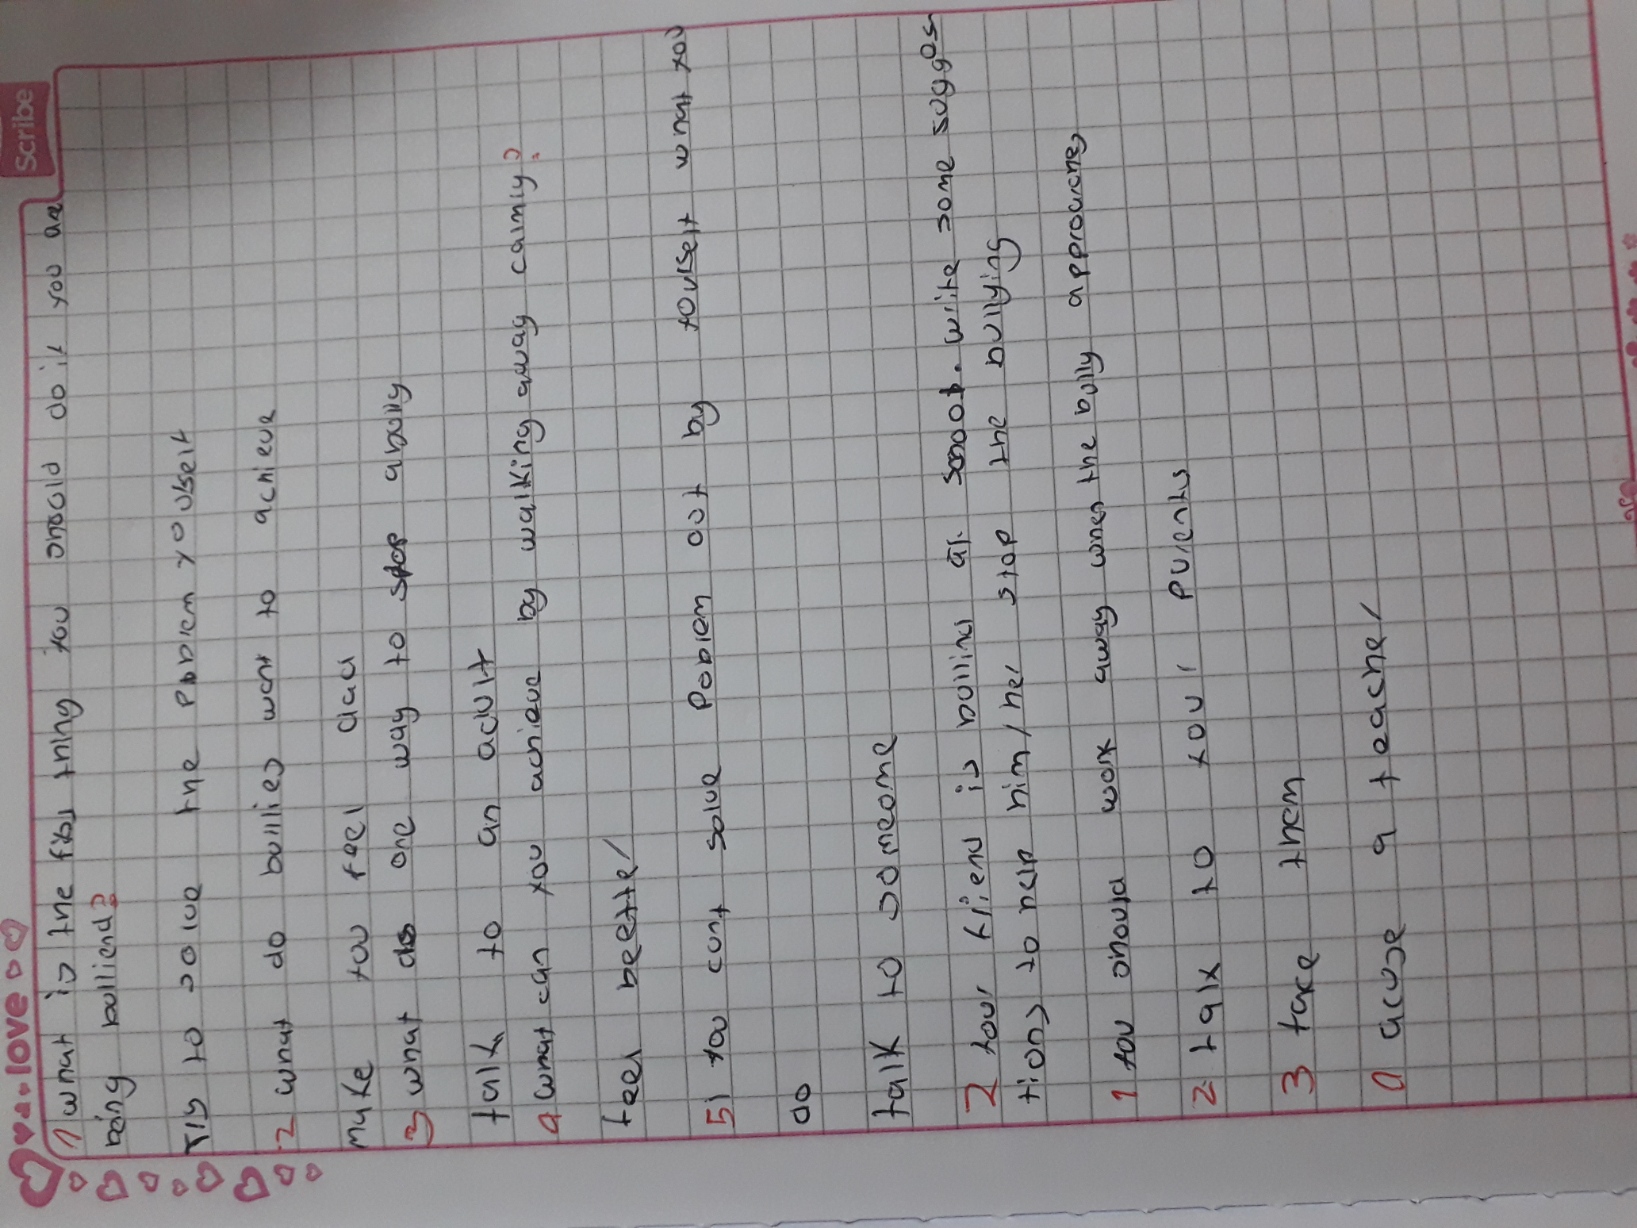 love
Scribe
1 what is the first thing you should do if you are
being bulliend?
Try to solve the problem yourself
2 what do bullies want to achieve
make you feel dad
3 what do one way to stop a bully
talk to an adult
4 what can you achieve by walking away calmly?
feel beetter
5 i you cant solve Poblem out by yourself what you
do
talk to someone
2 your friend is bullind at school. write some sugges
tions to help him/her stop the bullying
1 you should work away when the bully approaches
2 talk to your parents
3 face them
a teacher